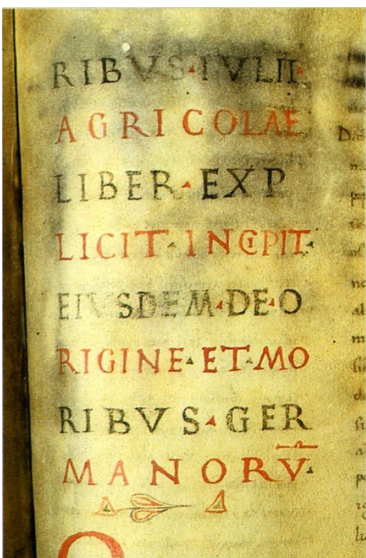 RIBVS·IVLII·
AGRICOLAE
LIBER·EXP
LICIT·INCIPIT·
EIVSDEM·DE·O
RIGINE·ET·MO
RIBVS·GER
MANORV̅·